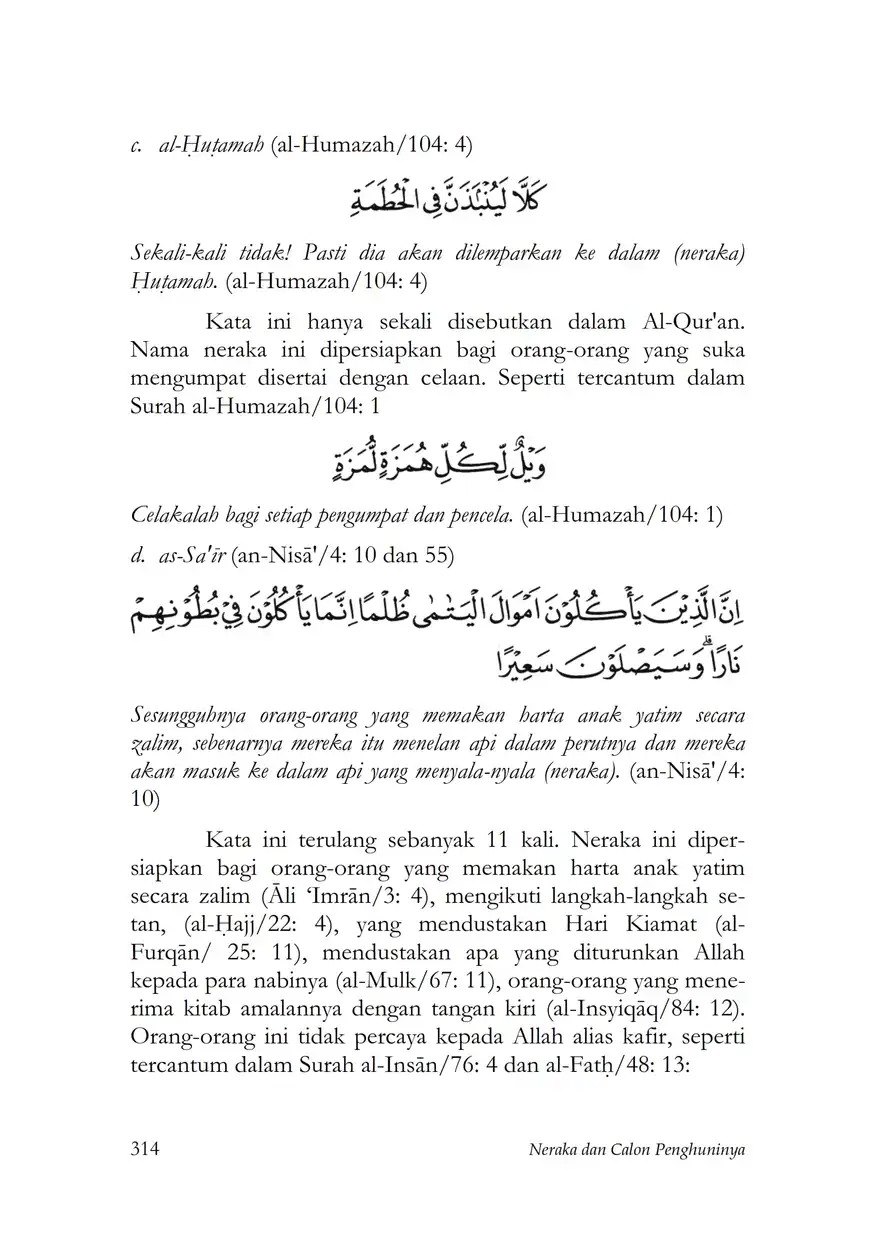 c. al-Ḥuṭamah (al-Humazah/104: 4)
كَلَّا لَيُنْۢبَذَنَّ فِى الْحُطَمَةِ
Sekali-kali tidak! Pasti dia akan dilemparkan ke dalam (neraka)
Ḥuṭamah. (al-Humazah/104: 4)
Kata ini hanya sekali disebutkan dalam Al-Qur'an.
Nama neraka ini dipersiapkan bagi orang-orang yang suka
mengumpat disertai dengan celaan. Seperti tercantum dalam
Surah al-Humazah/104: 1
وَيْلٌ لِّكُلِّ هُمَزَةٍ لُّمَزَةٍ
Celakalah bagi setiap pengumpat dan pencela. (al-Humazah/104: 1)
d. as-Sa'īr (an-Nisā'/4: 10 dan 55)
اِنَّ الَّذِيْنَ يَأْكُلُوْنَ اَمْوَالَ الْيَتٰمٰى ظُلْمًا اِنَّمَا يَأْكُلُوْنَ فِيْ بُطُوْنِهِمْ
نَارًاۗ وَسَيَصْلَوْنَ سَعِيْرًا
Sesungguhnya orang-orang yang memakan harta anak yatim secara
zalim, sebenarnya mereka itu menelan api dalam perutnya dan mereka
akan masuk ke dalam api yang menyala-nyala (neraka). (an-Nisā'/4:
10)
Kata ini terulang sebanyak 11 kali. Neraka ini diper-
siapkan bagi orang-orang yang memakan harta anak yatim
secara zalim (Āli ‘Imrān/3: 4), mengikuti langkah-langkah se-
tan, (al-Ḥajj/22: 4), yang mendustakan Hari Kiamat (al-
Furqān/ 25: 11), mendustakan apa yang diturunkan Allah
kepada para nabinya (al-Mulk/67: 11), orang-orang yang mene-
rima kitab amalannya dengan tangan kiri (al-Insyiqāq/84: 12).
Orang-orang ini tidak percaya kepada Allah alias kafir, seperti
tercantum dalam Surah al-Insān/76: 4 dan al-Fatḥ/48: 13:
314 Neraka dan Calon Penghuninya